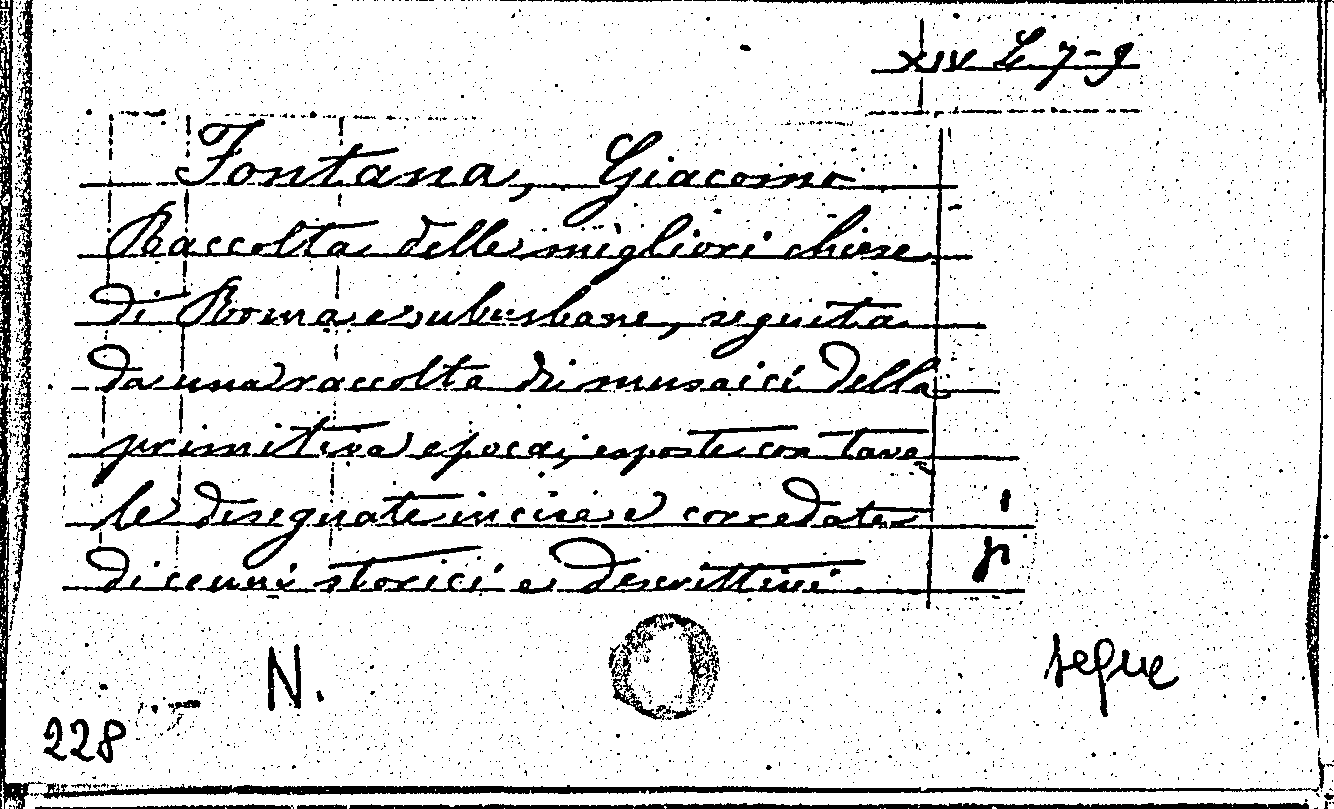 XIV L 7-9
Fontana, Giacomo
Raccolta delle migliori chiese
di Roma e suburbane, seguita
da una raccolta di musaici della
primitiva epoca, esposte con tavo
le disegnate incise e corredate
di cenni storici e descrittivi.
N.
segue
228